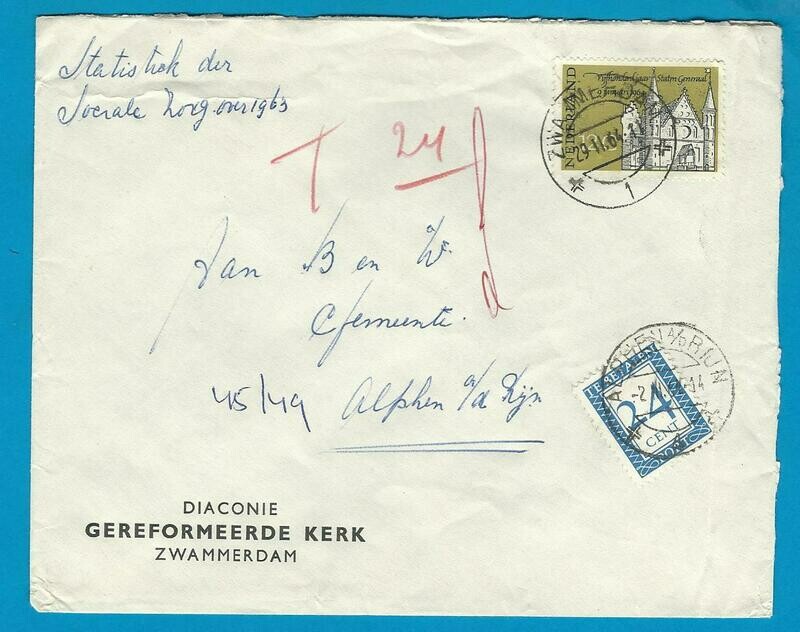 Statistiek der
Sociale Zorg over 1963
Vijfhonderd jaar Staten Generaal
9 januari 1964
NEDERLAND
ZWAMMERDAM
29.11.64
1
T 24
d
Aan B en W.
Gemeente.
45/49 Alphen a/d Rijn
ALPHEN A/D RIJN
TE BETALEN
24
CENT
PORT
DIACONIE
GEREFORMEERDE KERK
ZWAMMERDAM